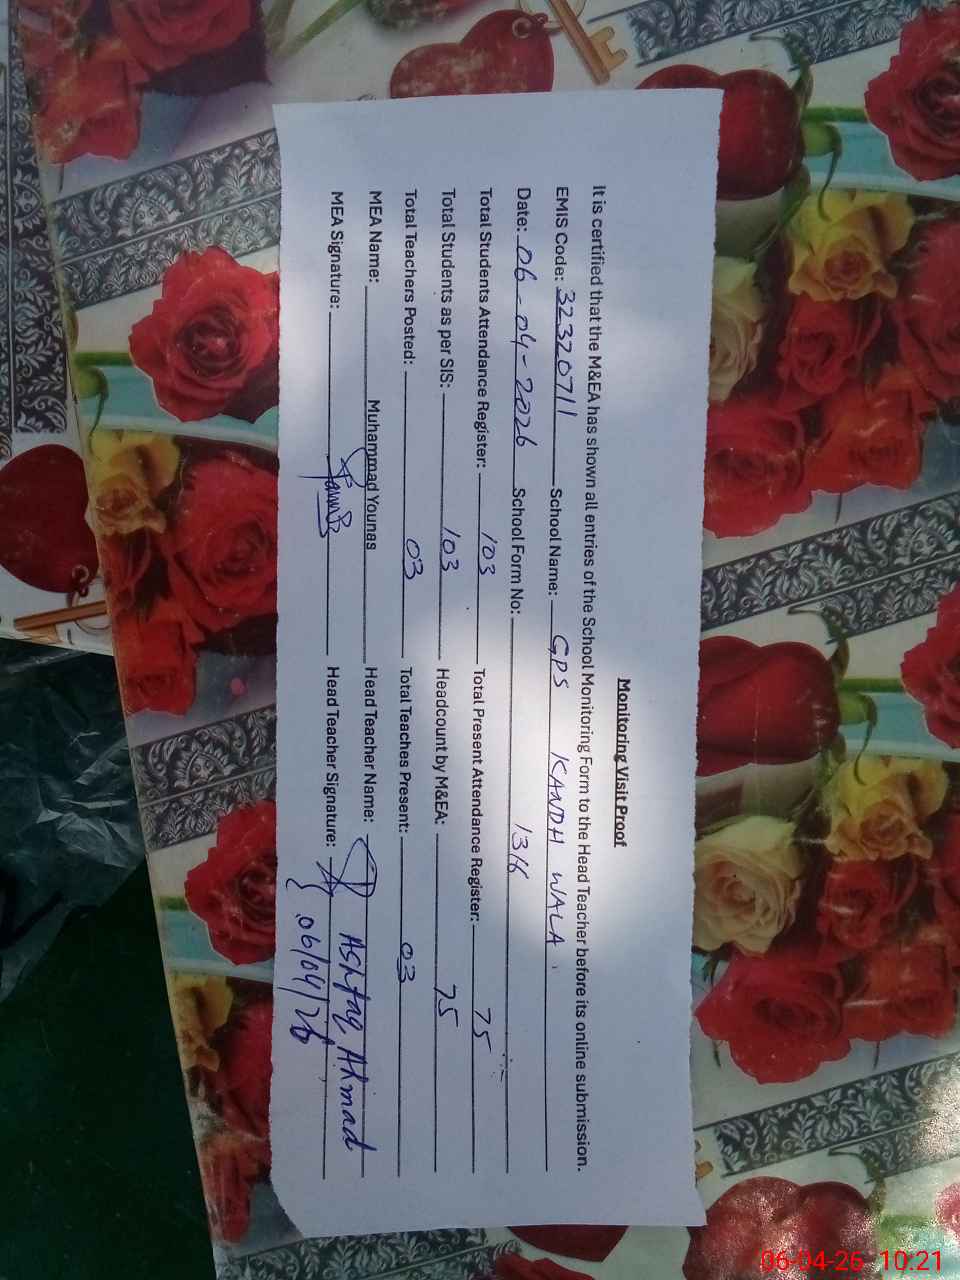 Monitoring Visit Proof
It is certified that the M&EA has shown all entries of the School Monitoring Form to the Head Teacher before its online submission.
EMIS Code: 32320711 School Name: GPS KANDH WALA
Date: 06-04-2026 School Form No: 1316
Total Students Attendance Register: 103 Total Present Attendance Register: 75
Total Students as per SIS: 103 Headcount by M&EA: 75
Total Teachers Posted: 03 Total Teaches Present: 03
MEA Name: Muhammad Younas Head Teacher Name: Ashfaq Ahmad
MEA Signature: Head Teacher Signature:
06/04/26
06-04-26 10:21